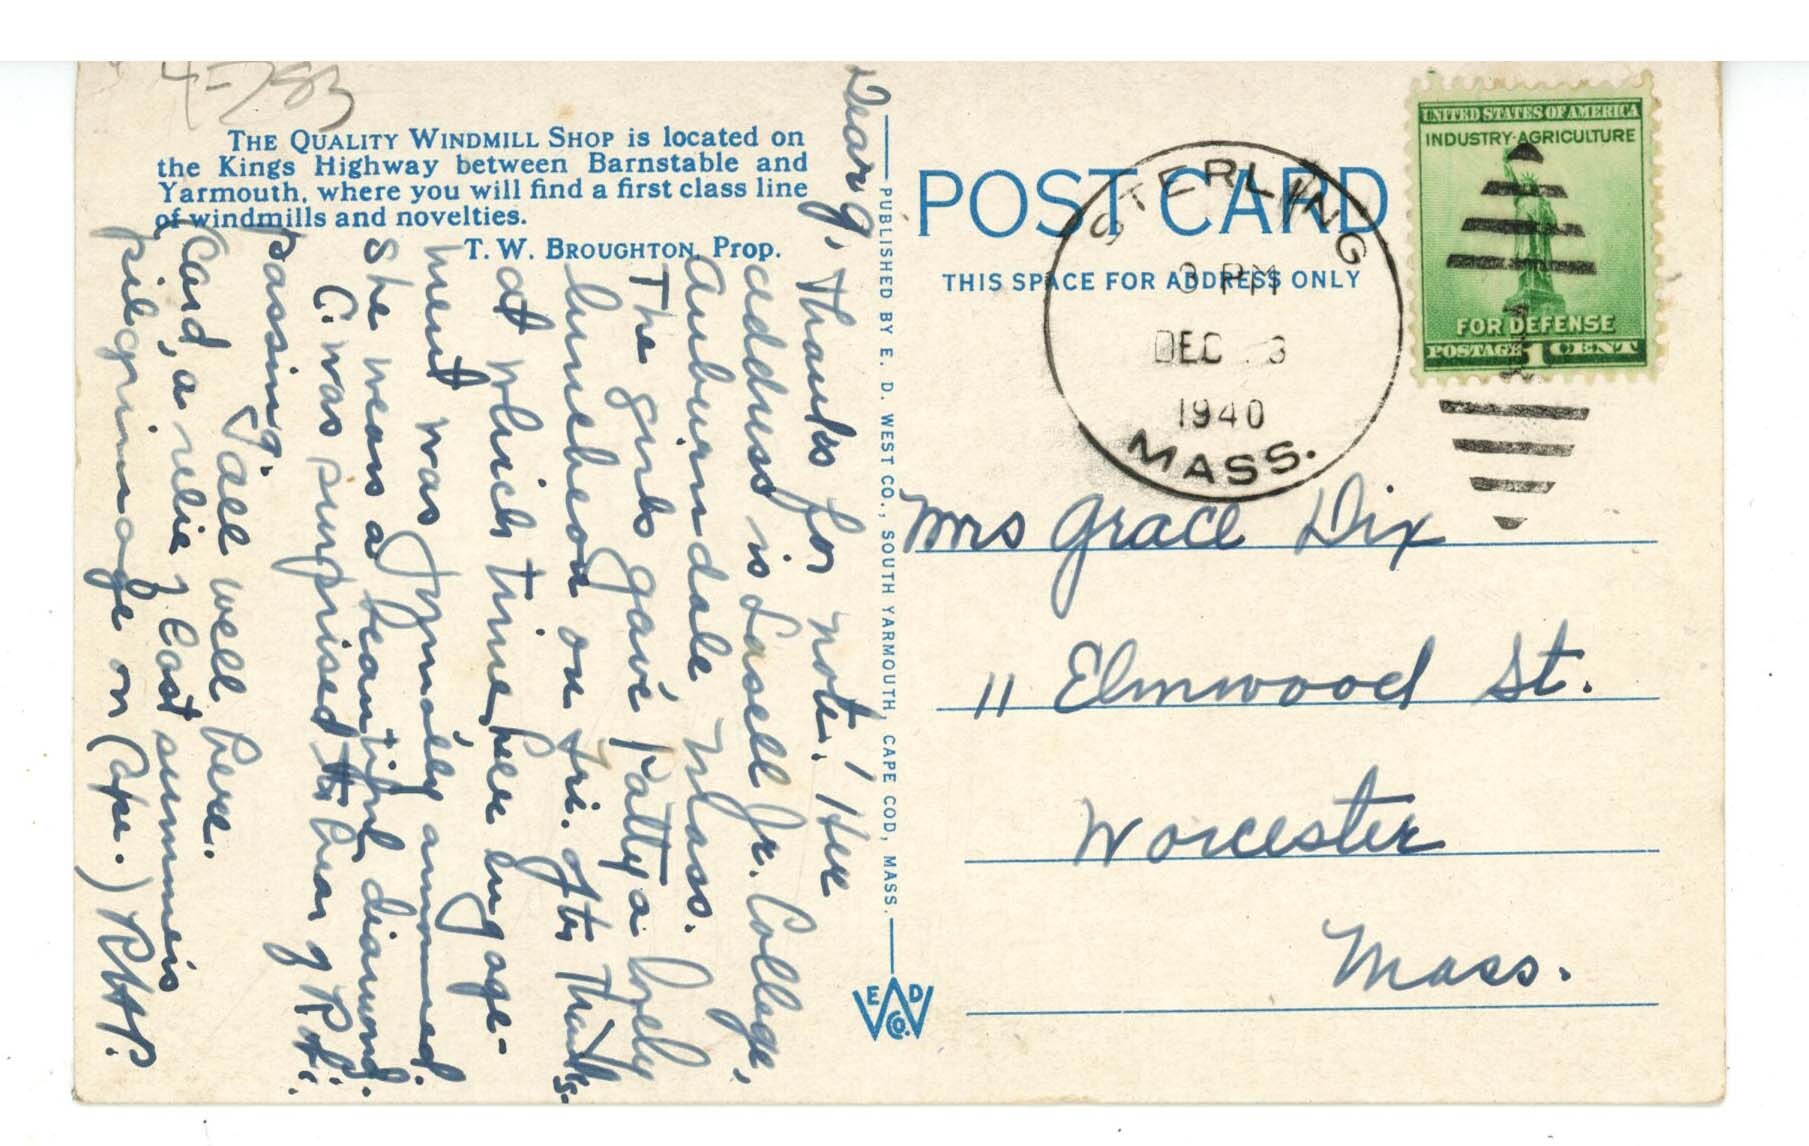 4-283
THE QUALITY WINDMILL SHOP is located on
the Kings Highway between Barnstable and
Yarmouth, where you will find a first class line
of windmills and novelties.
T. W. BROUGHTON, Prop.
Dear G, Thanks for note! Her
address is Lasell Jr. College,
Auburndale Mass.
The girls gave Patty a lovely
luncheon on Fri. after Thanks.
at which time, her engage-
ment was formally announced.
She wears a beautiful diamond.
C. was surprised to hear of R's
passing.
Card, a relic of last summer's
pilgrimage on Cape.) R.H.P.
all well here.
PUBLISHED BY E. D. WEST CO., SOUTH YARMOUTH, CAPE COD, MASS.
E D W CO.
POST CARD
THIS SPACE FOR ADDRESS ONLY
STERLING
3 PM
DEC 3
1940
MASS.
UNITED STATES OF AMERICA
INDUSTRY-AGRICULTURE
FOR DEFENSE
POSTAGE 1 CENT
Mrs Grace Dix
11 Elmwood St.
Worcester
Mass.